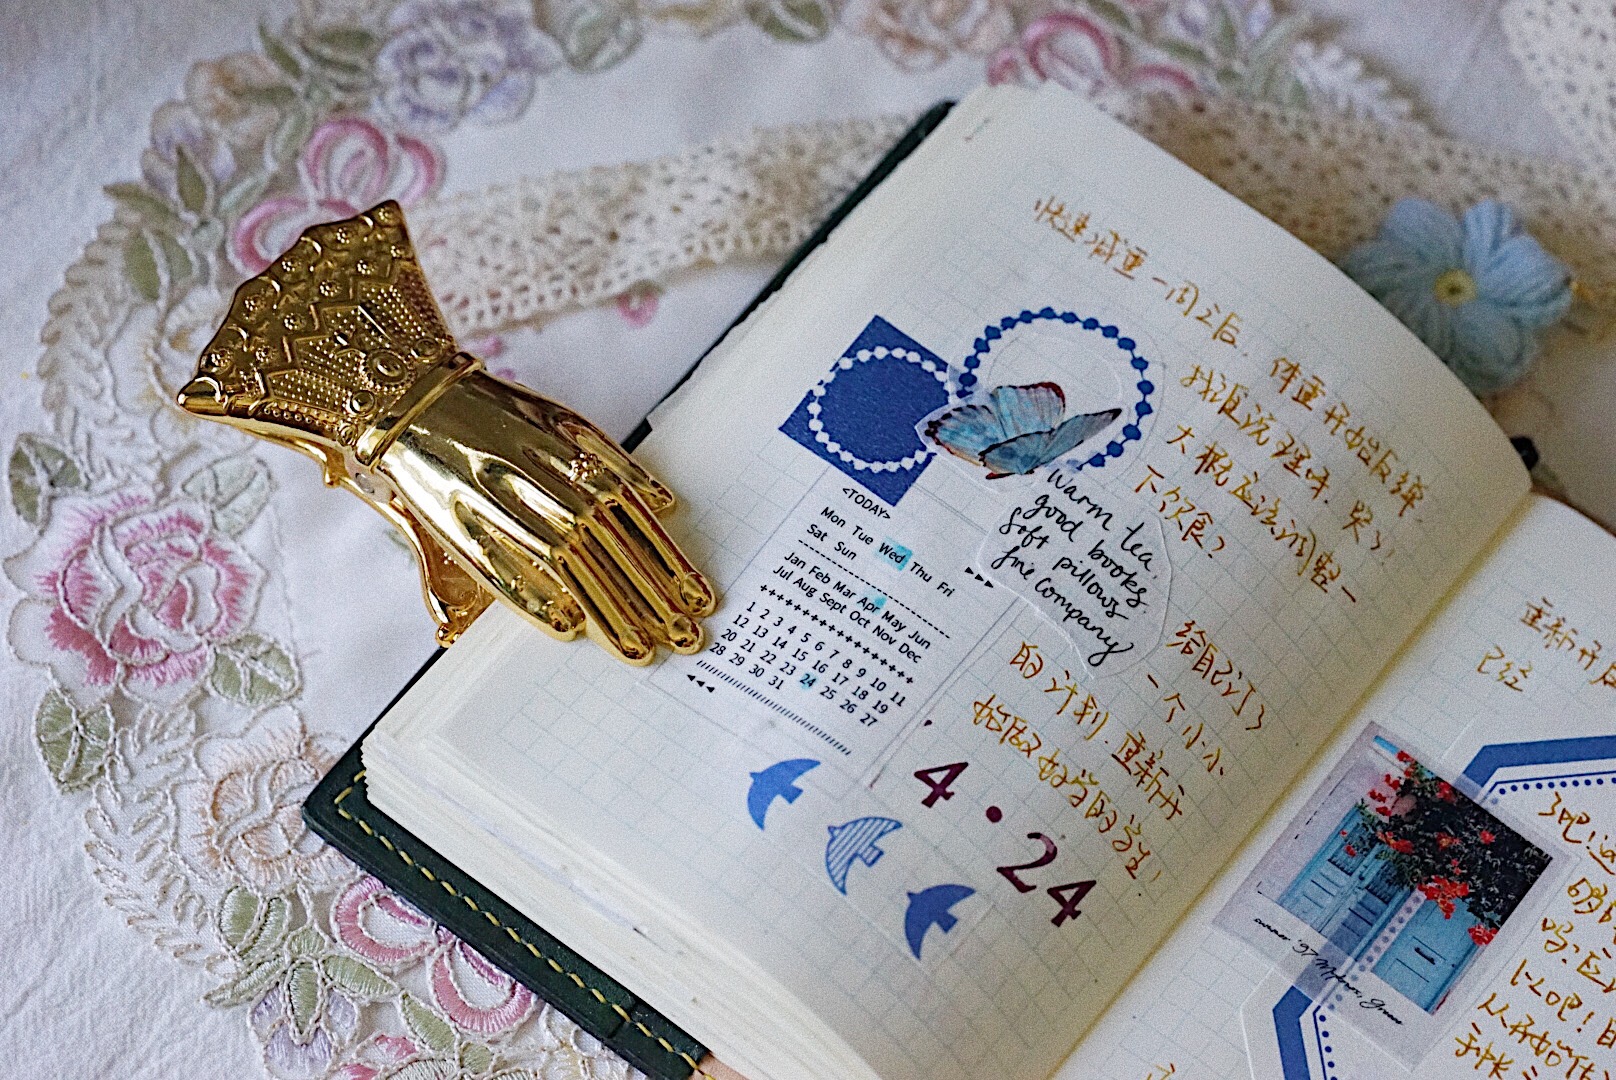 快速减重一周之后，体重开始反弹
找汇流理味，哭了！
大概应该调整一
下饮食？
<TODAY>
Mon Tue Wed Thu Fri
Sat Sun
Jan Feb Mar Apr May Jun
Jul Aug Sept Oct Nov Dec
++++++++++++++++
1 2 3 4 5 6 7 8 9 10 11
12 13 14 15 16 17 18 19
20 21 22 23 24 25 26 27
28 29 30 31
Warm tea,
good books,
Soft pillows
fine Company
给自己订了
一个小小
的计划，重新开
始做好学的学生！
4·24
重新开
已经
summer '97 Mykonos, Greece
了吧！这
吗？应
吧！
从开始